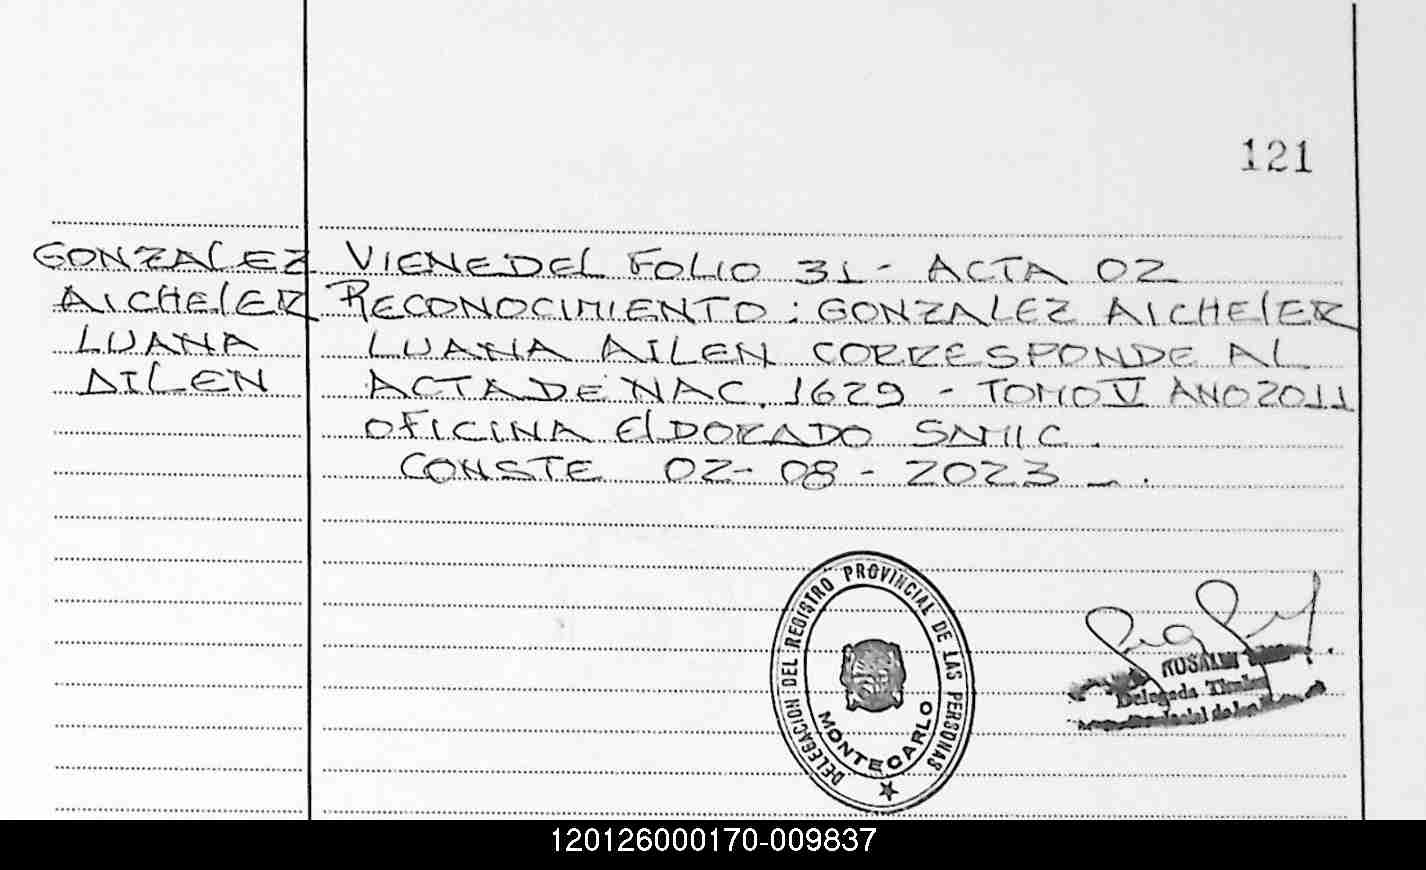 121
GONZALEZ
AICHElER
LUANA
AILEN
VIENE DEL FOLIO 31 - ACTA 02
RECONOCIMIENTO : GONZALEZ AICHElER
LUANA AILEN CORRESPONDE AL
ACTA DE NAC. 1629 - TOMO V ANO 2011
OFICINA ElDORADO SAMIC.
CONSTE 02-08-2023 -.
DELEGACION DEL REGISTRO PROVINCIAL DE LAS PERSONAS
MONTECARLO
Delegada Titular
120126000170-009837